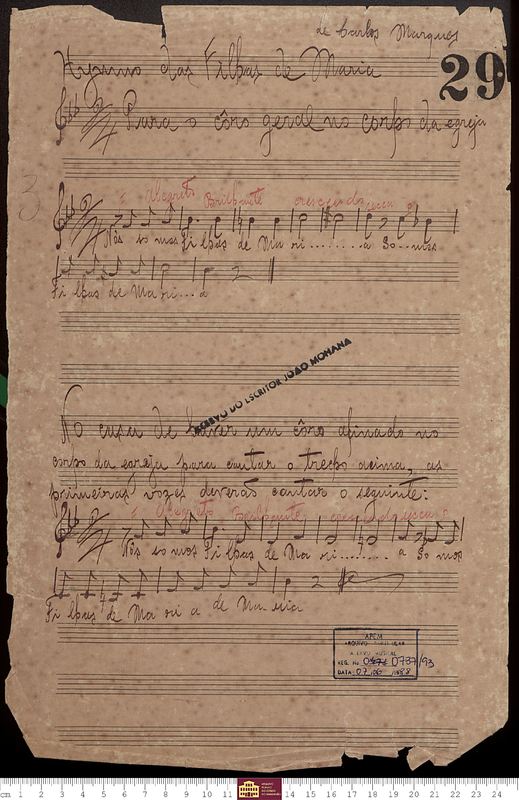 de Carlos Marques
Hymno das Filhas de Maria
29
Para o côro geral no corpo da egreja
3
Alegreto Brilhante crescendo
Nós so mos Fi lhas de Ma ri.........a So..mos
Fi lhas de Ma ri...a
ACERVO DO ESCRITOR JOÃO MOHANA
No caso de haver um côro afinado no
corpo da egreja para cantar o trecho acima, as
primeiras vozes deverão cantar o seguinte:
Alegreto Brilhante crescendo
Nós so mos Fi lhas de Ma ri......... a So mos
Fi lhas de Ma ri a de Ma ria
APEM
REG. No 0737/93
DATA: 07
cm 1 2 3 4 5 6 7 8 9 10 11 12 14 15 16 17 18 19 20 21 22 23 24